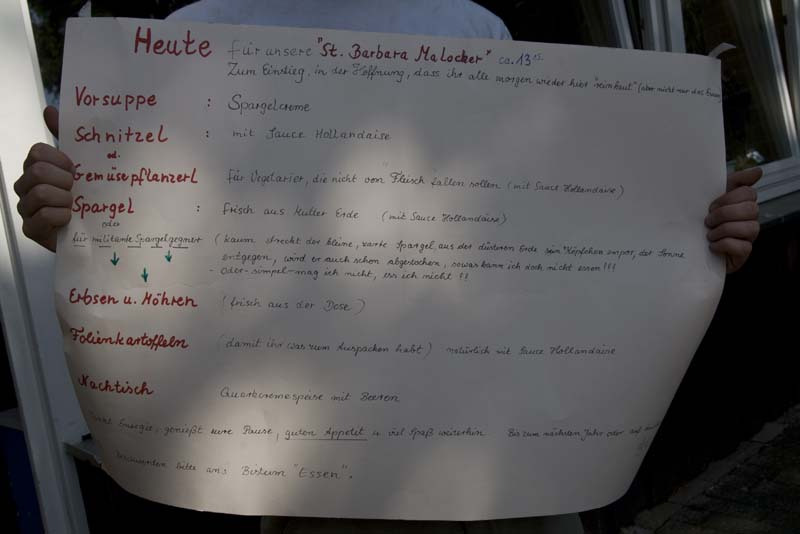 Heute für unsere "St. Barbara Malocker" ca. 13
Zum Einstieg, in der Hoffnung, dass ihr alle morgen wieder hier "reinhaut" (aber nicht nur das
Vorsuppe : Spargelcreme
Schnitzel : mit Sauce Hollandaise
od.
Gemüsepflanzerl für Vegetarier, die nicht vom Fleisch fallen sollen (mit Sauce Hollandaise)
Spargel : Frisch aus Mutter Erde (mit Sauce Hollandaise)
oder
für militante Spargelgegner (kaum streckt der kleine, zarte Spargel aus der düsteren Erde sein Köpfchen empor, der Sonne
entgegen, wird er auch schon abgestochen, sowas kann ich doch nicht essen!!!
- Oder - simpel - mag ich nicht, ess ich nicht!!
Erbsen u. Möhren (frisch aus der Dose)
Folienkartoffeln (damit ihr was zum Auspacken habt) natürlich mit Sauce Hollandaise
Nachtisch Quarkcremespeise mit Beeren
Energie, genießt eure Pause, guten Appetit u. viel Spaß weiterhin Bis zum nächsten Jahr oder auf
bitte ans Bistum "Essen".